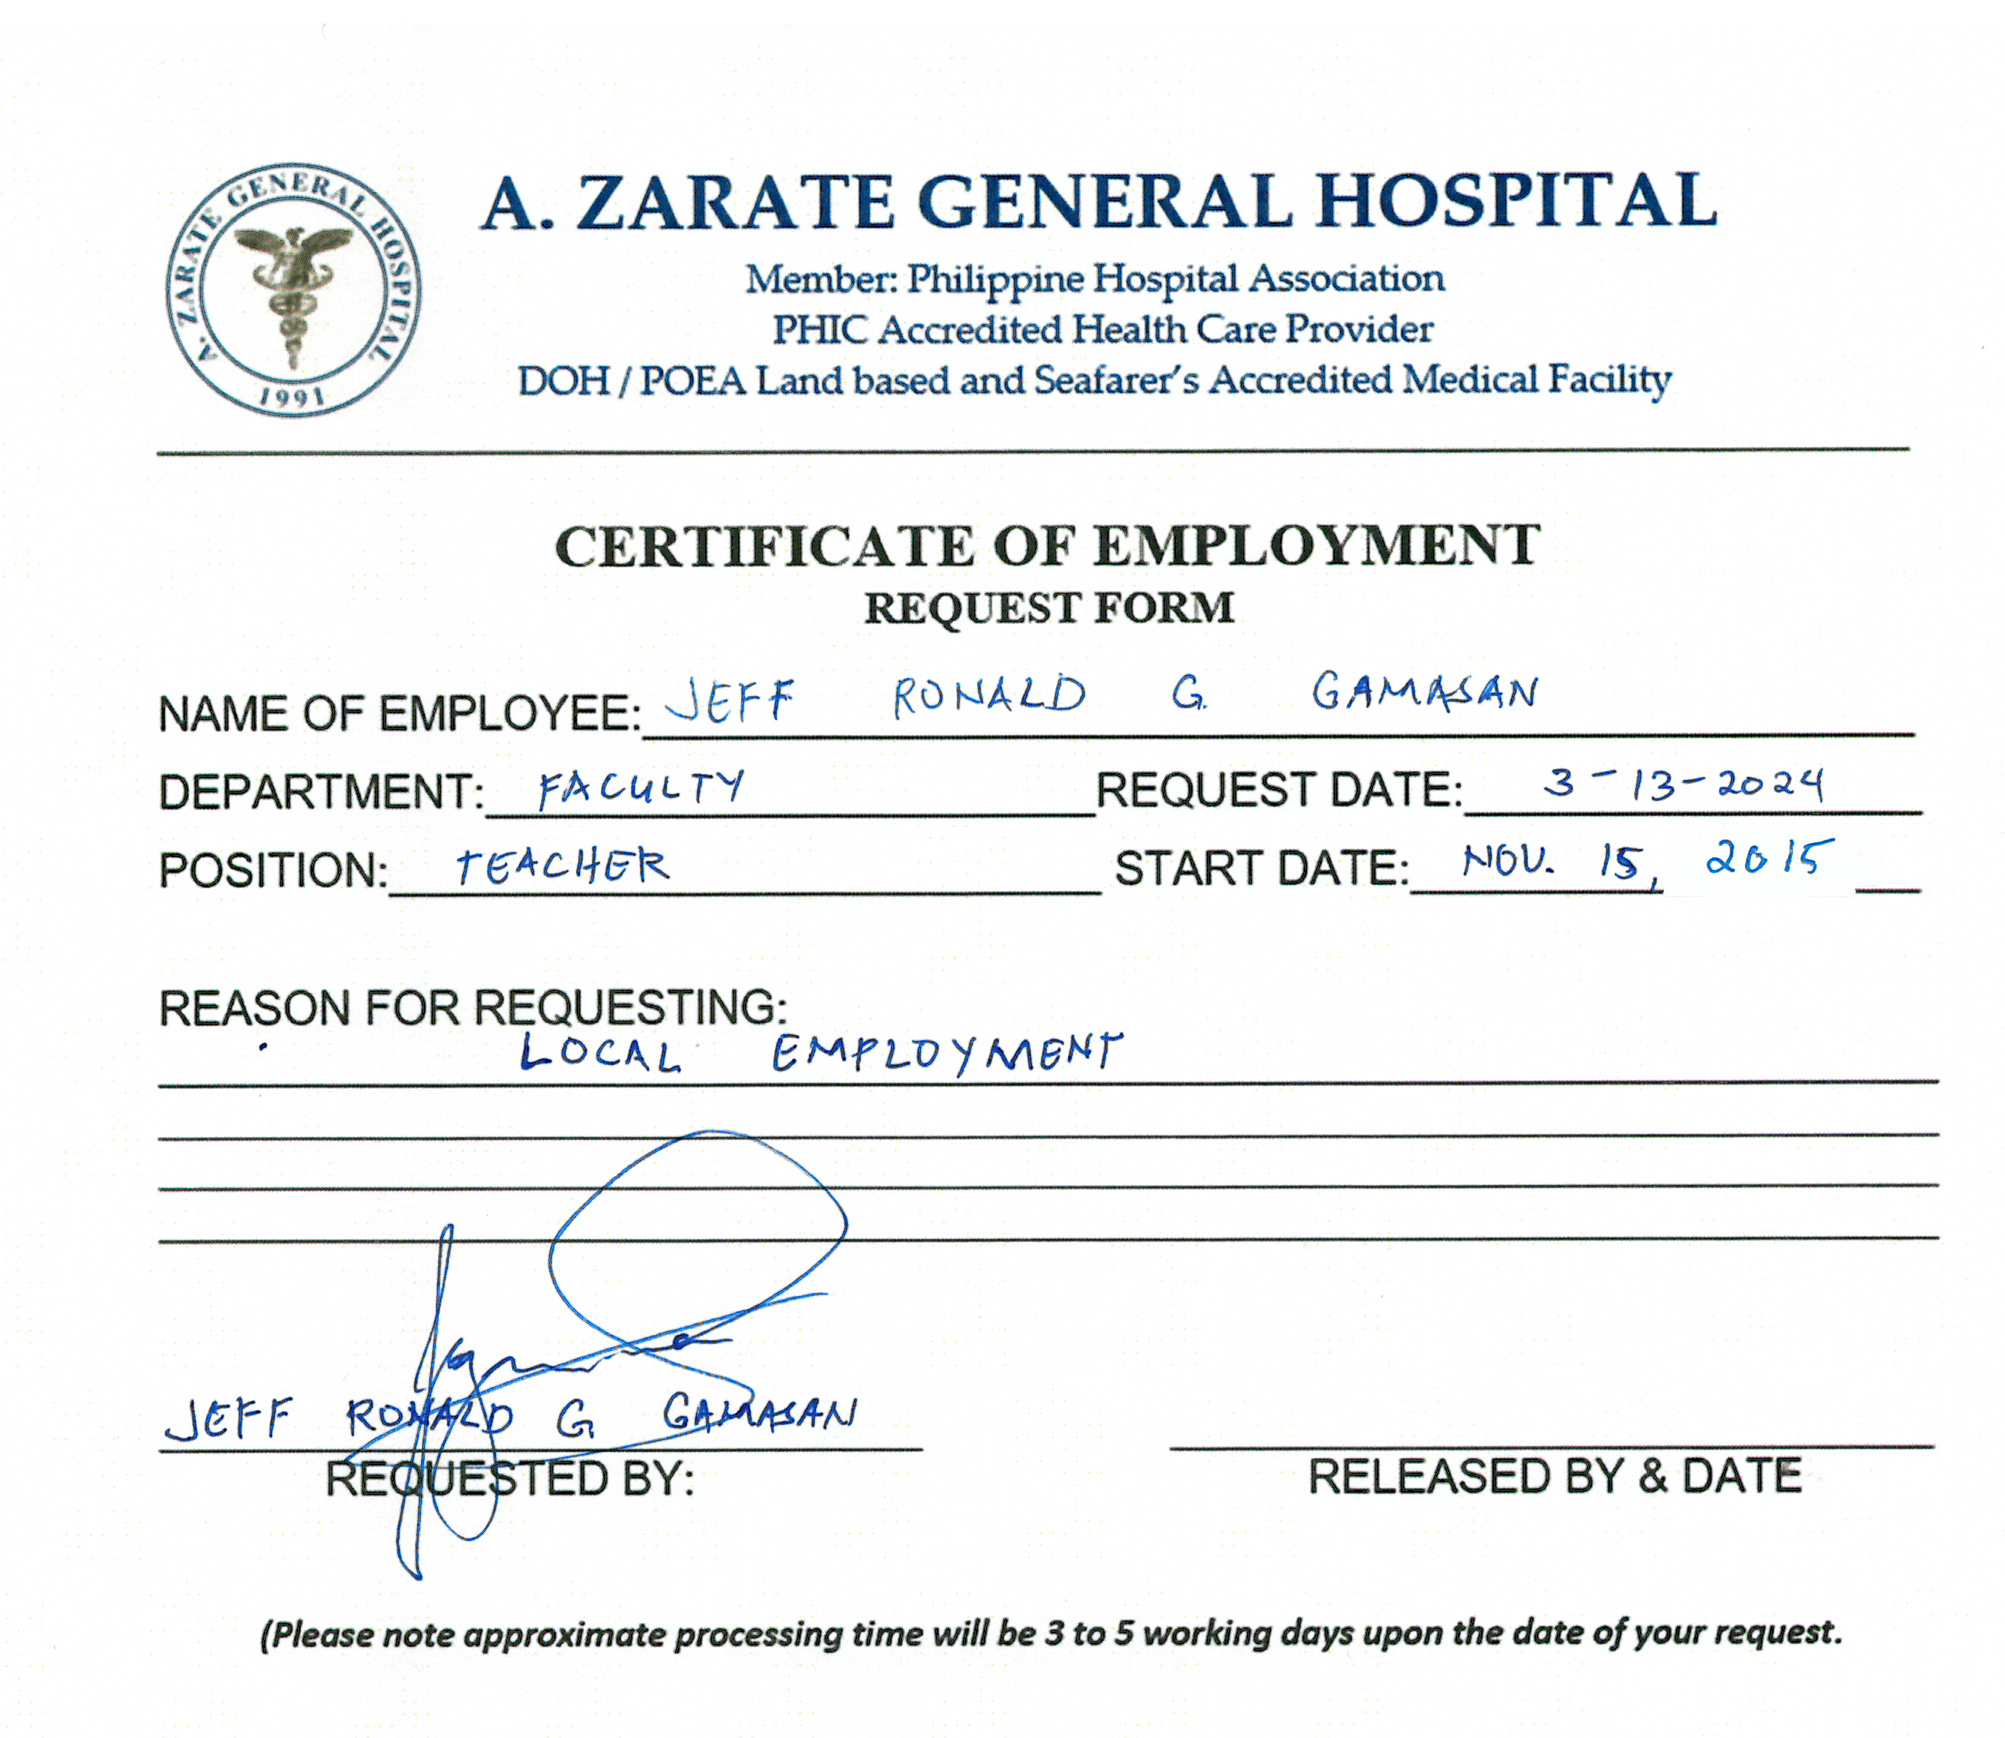 A. ZARATE GENERAL HOSPITAL
1991
A. ZARATE GENERAL HOSPITAL
Member: Philippine Hospital Association
PHIC Accredited Health Care Provider
DOH / POEA Land based and Seafarer's Accredited Medical Facility
CERTIFICATE OF EMPLOYMENT
REQUEST FORM
NAME OF EMPLOYEE: JEFF RONALD G. GAMASAN
DEPARTMENT: FACULTY REQUEST DATE: 3-13-2024
POSITION: TEACHER START DATE: NOV. 15, 2015
REASON FOR REQUESTING:
LOCAL EMPLOYMENT
JEFF RONALD G GAMASAN
REQUESTED BY: RELEASED BY & DATE
(Please note approximate processing time will be 3 to 5 working days upon the date of your request.